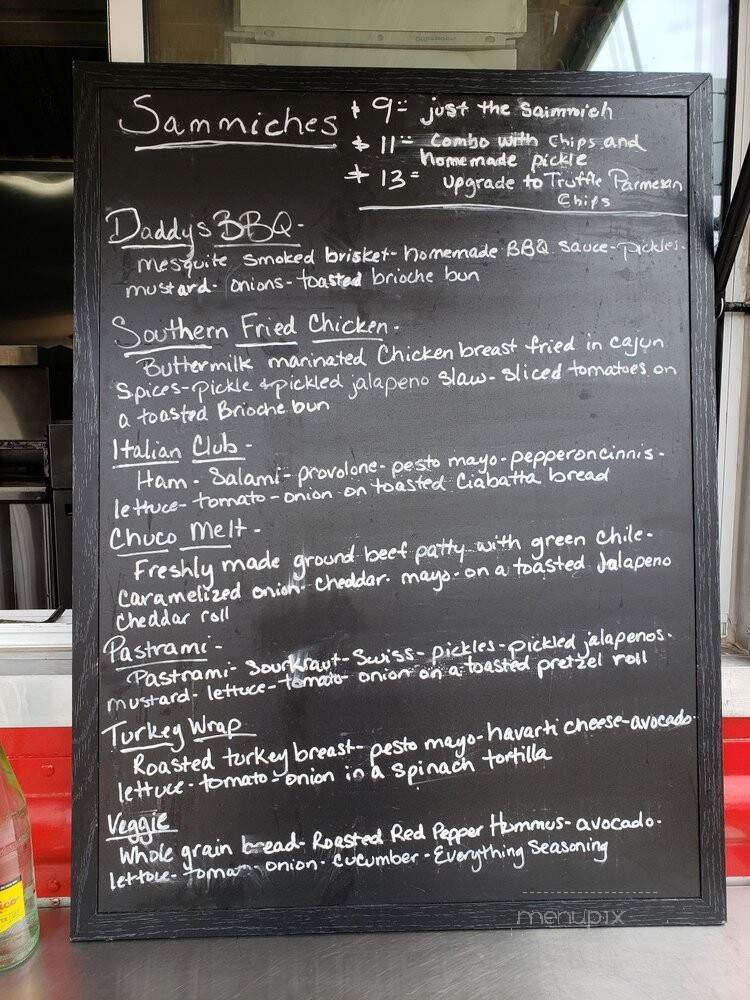 Sammiches
$ 9 = just the sammich
$ 11 = Combo with Chips and
homemade pickle
$ 13 = upgrade to Truffle Parmesan
Chips
Daddys BBQ -
mesquite smoked brisket - homemade BBQ sauce - pickles -
mustard - onions - toasted brioche bun
Southern Fried Chicken -
Buttermilk marinated Chicken breast fried in cajun
Spices - pickle & pickled jalapeno slaw - sliced tomatoes on
a toasted Brioche bun
Italian Club -
Ham - Salami - provolone - pesto mayo - pepperoncinnis -
lettuce - tomato - onion on toasted Ciabatta bread
Chuco Melt -
Freshly made ground beef patty with green chile -
caramelized onion - cheddar - mayo - on a toasted Jalapeno
cheddar roll
Pastrami -
Pastrami - Sourkraut - Swiss - pickles - pickled jalapenos -
mustard - lettuce - tomato onion on a toasted pretzel roll
Turkey Wrap
Roasted turkey breast - pesto mayo - havarti cheese - avocado -
lettuce - tomato - onion in a spinach tortilla
Veggie
Whole grain bread - Roasted Red Pepper Hummus - avocado -
lettuce - tomato - onion - cucumber - Everything Seasoning
menupix